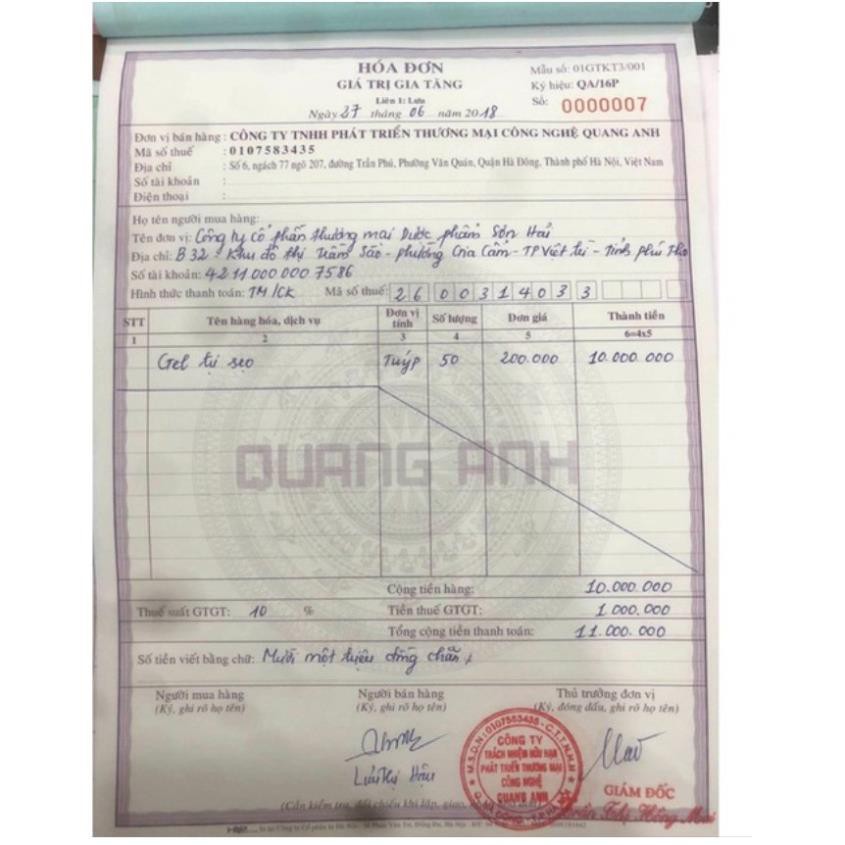 HÓA ĐƠN
GIÁ TRỊ GIA TĂNG
Liên 1: Lưu
Ngày 27 tháng 06 năm 2018
Mẫu số: 01GTKT3/001
Ký hiệu: QA/16P
Số: 0000007
Đơn vị bán hàng : CÔNG TY TNHH PHÁT TRIỂN THƯƠNG MẠI CÔNG NGHỆ QUANG ANH
Mã số thuế : 0107583435
Địa chỉ : Số 6, ngách 77 ngõ 207, đường Trần Phú, Phường Văn Quán, Quận Hà Đông, Thành phố Hà Nội, Việt Nam
Số tài khoản :
Điện thoại :
Họ tên người mua hàng:
Tên đơn vị: Công ty cổ phần thương mại Dược phẩm Sơn Hải
Địa chỉ: B32 - Khu đô thị Trầm Sào - phường Gia Cẩm - TP Việt trì - Tỉnh phú thọ
Số tài khoản: 4211000000 7586
Hình thức thanh toán: TM/CK Mã số thuế: 2600314033
STT Tên hàng hóa, dịch vụ Đơn vị tính Số lượng Đơn giá Thành tiền
1 2 3 4 5 6=4x5
Gel trị sẹo Tuýp 50 200.000 10.000.000
QUANG ANH
Cộng tiền hàng: 10.000.000
Thuế suất GTGT: 10 % Tiền thuế GTGT: 1.000.000
Tổng cộng tiền thanh toán: 11.000.000
Số tiền viết bằng chữ: Mười một triệu đồng chẵn
Người mua hàng Người bán hàng Thủ trưởng đơn vị
(Ký, ghi rõ họ tên) (Ký, ghi rõ họ tên) (Ký, đóng dấu, ghi rõ họ tên)
M.S.D.N: 0107583435 - C.T.T.N.H.H
CÔNG TY
TRÁCH NHIỆM HỮU HẠN
PHÁT TRIỂN THƯƠNG MẠI
CÔNG NGHỆ
QUANG ANH
GIÁM ĐỐC
Trần Thị Hồng Mai
(Cần kiểm tra, đối chiếu khi lập, giao,